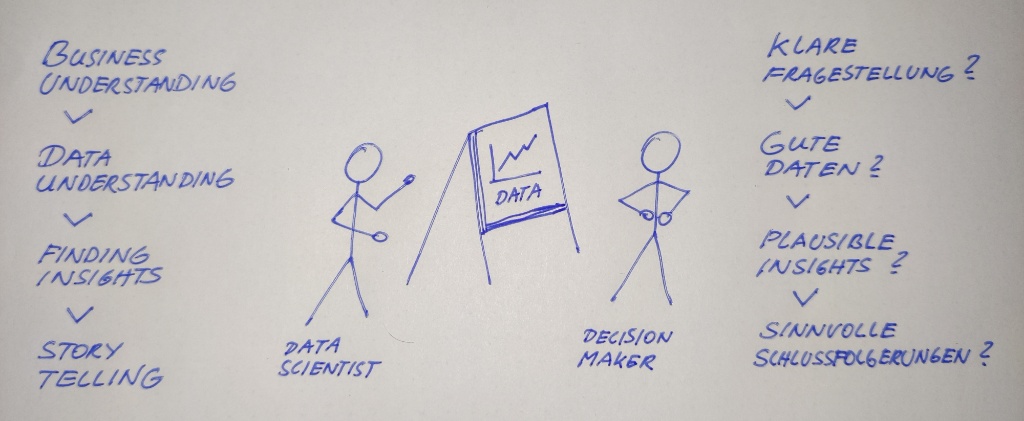 BUSINESS
UNDERSTANDING
DATA
UNDERSTANDING
FINDING
INSIGHTS
STORY
TELLING
DATA
DATA
SCIENTIST
DECISION
MAKER
KLARE
FRAGESTELLUNG?
GUTE
DATEN?
PLAUSIBLE
INSIGHTS?
SINNVOLLE
SCHLUSSFOLGERUNGEN?